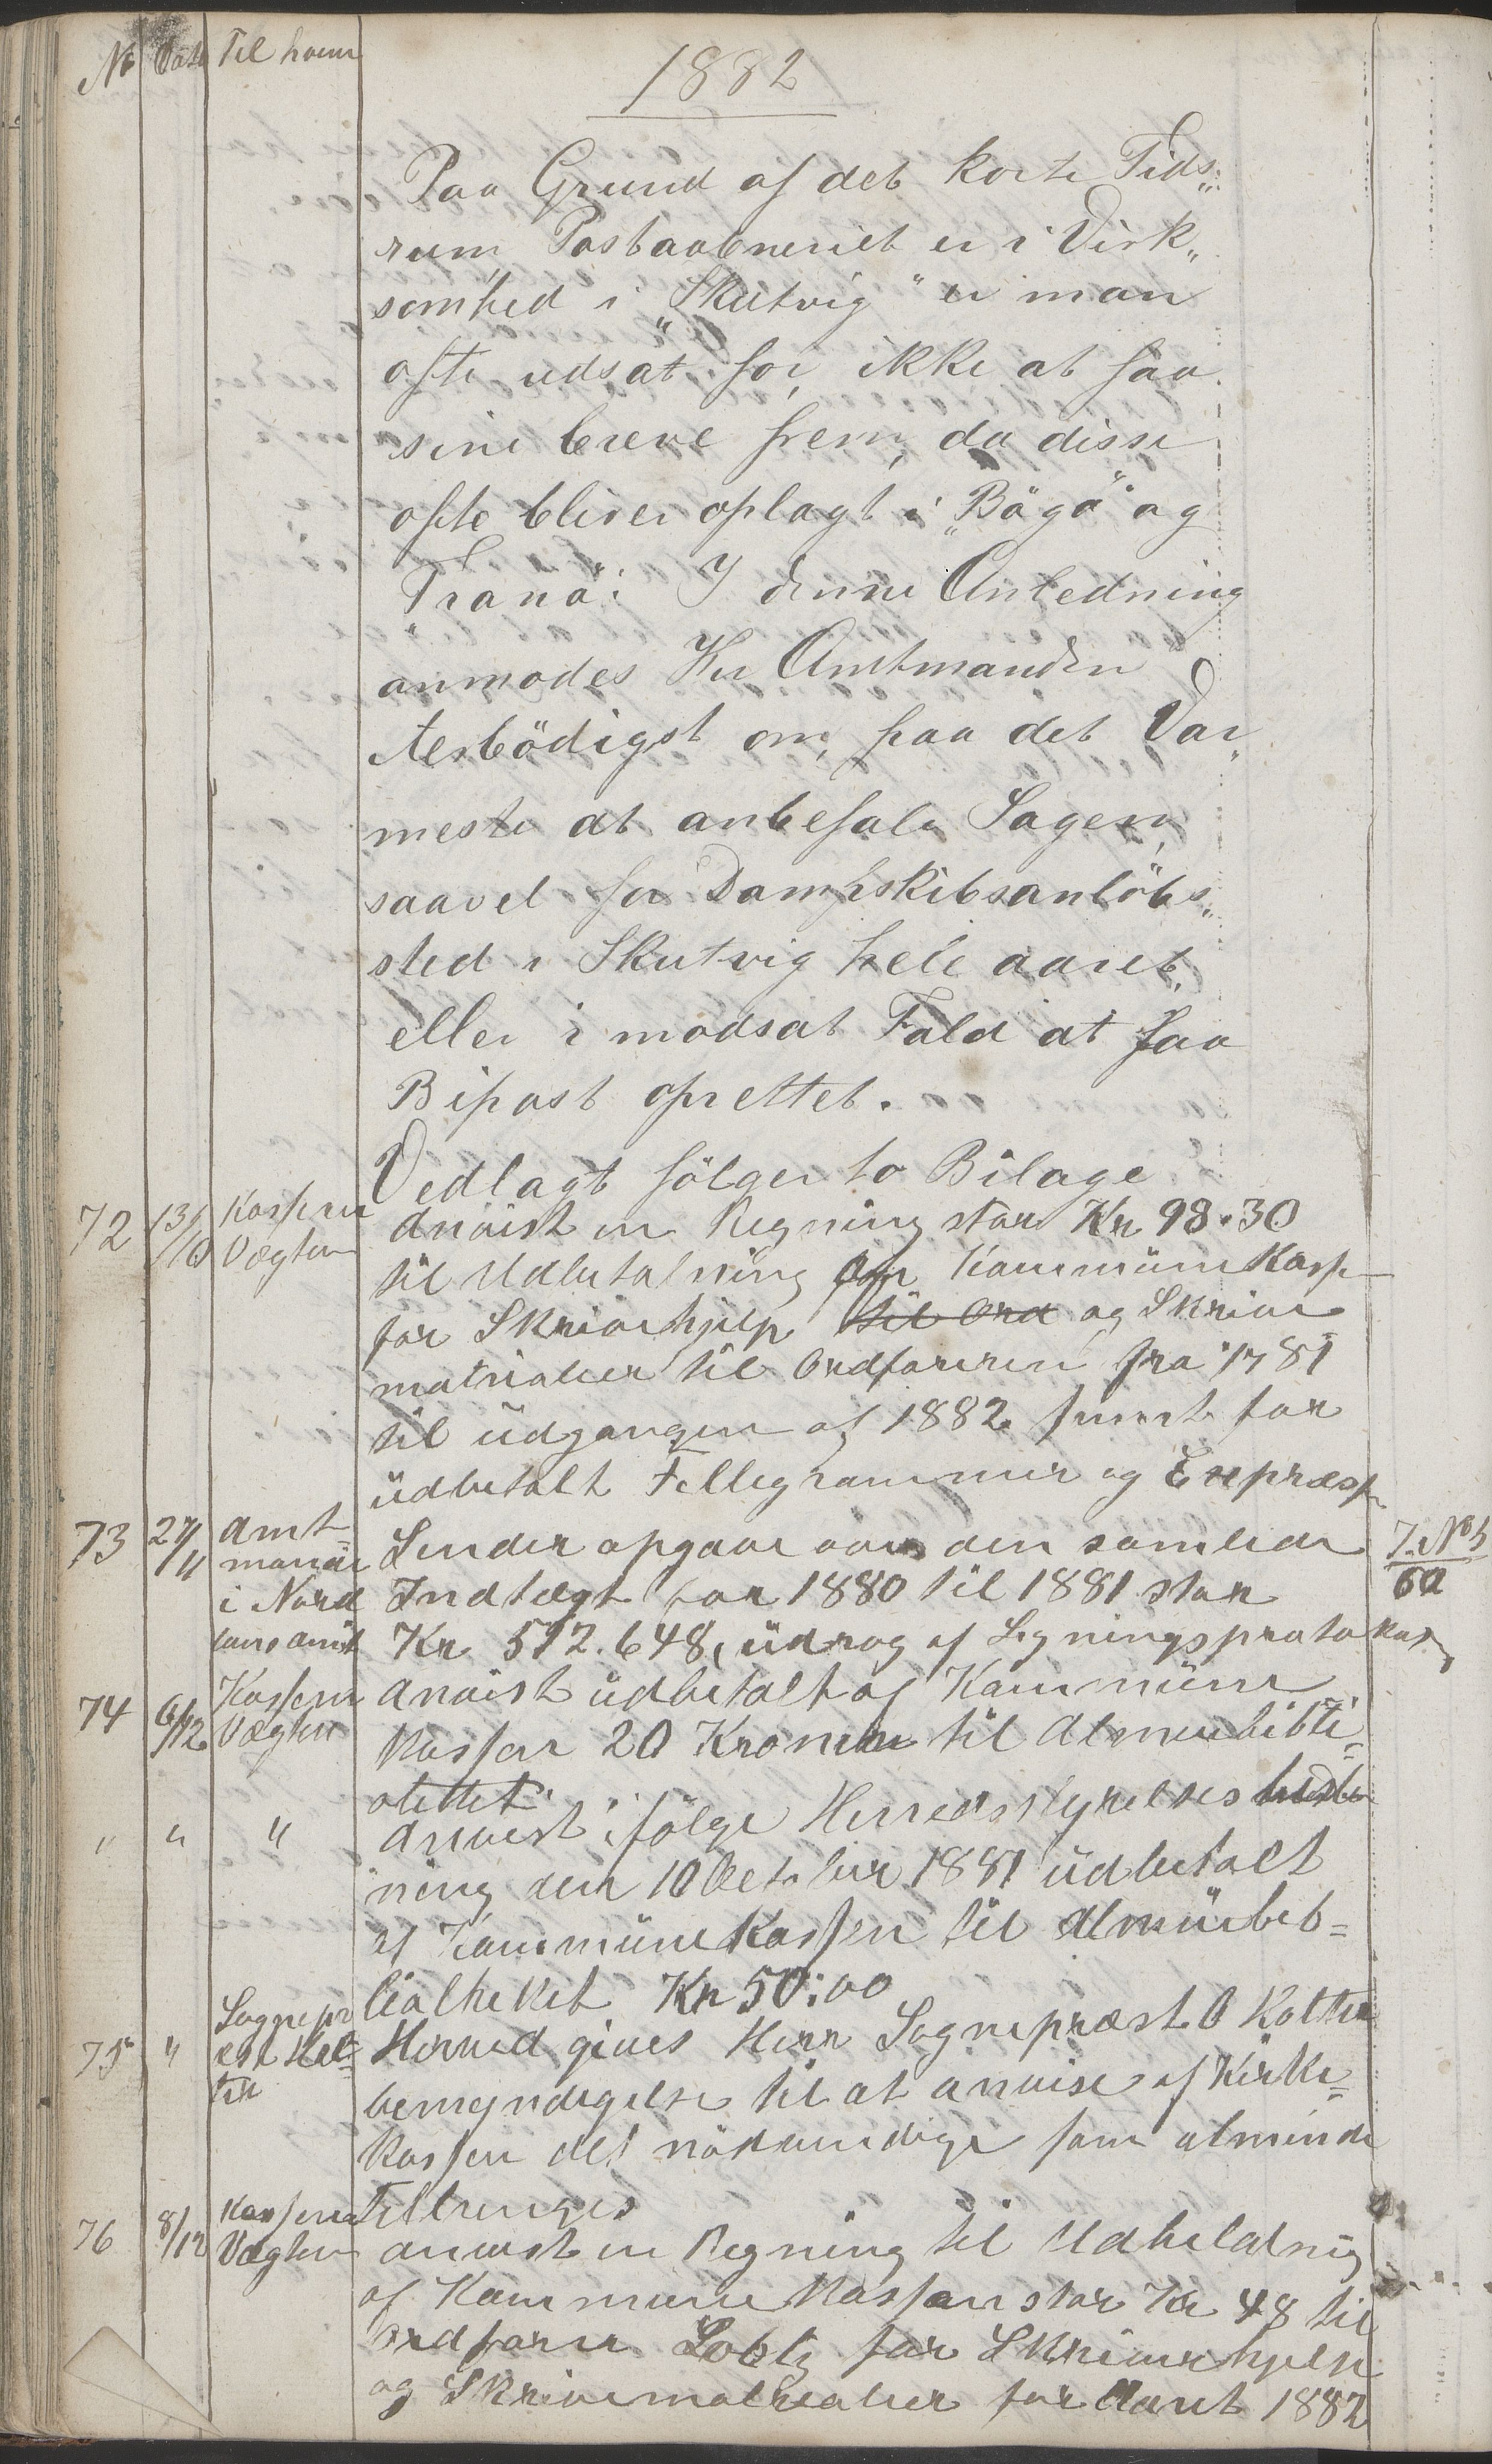 No Dato Til hvem
1882
Paa Grund af det korte Tids„
rum, Postaabneriet er i Virk„
somhed i „Skutvig“ er man
ofte udsat for, ikke at faa
sine breve frem, da disse
ofte bliver oplagt i „Bögö“ og
„Tranö“. I denne Anledning
anmodes Hr Amtmanden
ærbödigst om, paa det Var„
meste at anbefale Sagen,
saavel for Dampskibsanlöbs„
sted i Skutvig hele aaret,
eller i modsat Fald at faa
Bipost oprettet.
Vedlagt fölger to Bilage
72 13/10 Kasserer Vægter
Anvist en Regning stor Kr 98.30
til Udbetalning af Kommune Kass
for Skrivehjelp til Ord og Skrive
matrialier til Ordföreren fra 1/7 81
til üdgangen af 1882 samt for
üdbetalt Tellegrammer og Expræss
73 27/11 Amt
mand
i Nord
lans amt
Sender opgave over den samlede
J. No
60
Indtægt for 1880 til 1881 stor
Kr 512.648, üdrag af Ligningsprotokol
74 6/12 Kasserer Vægter
Anvist üdbetalt af Kommüne
Kassen 20 Kroner til Almuebibli
otettet
" " "
Anvist ifölge Herredsstyrelses beslut
ning den 10 October 1881 üdbetalt
af Kommüne Kassen til Almüebib=
liotheket Kr 50:00
75 " Sognepr
æst Kol=
ter
Herved gives Herr Sognepræst O Kolter
bemyndigelse til at anvise af Kirke=
kassen det nödvendige som alminde
Tiltrenges
76 8/12 Kasserer Vægter
anvist en Regning til Udbetalning
af Kommune Kassen stor Kr 48 til
ordförer Lobtz for Skrivehjelp
og Skrivematrialier for Aaret 1882